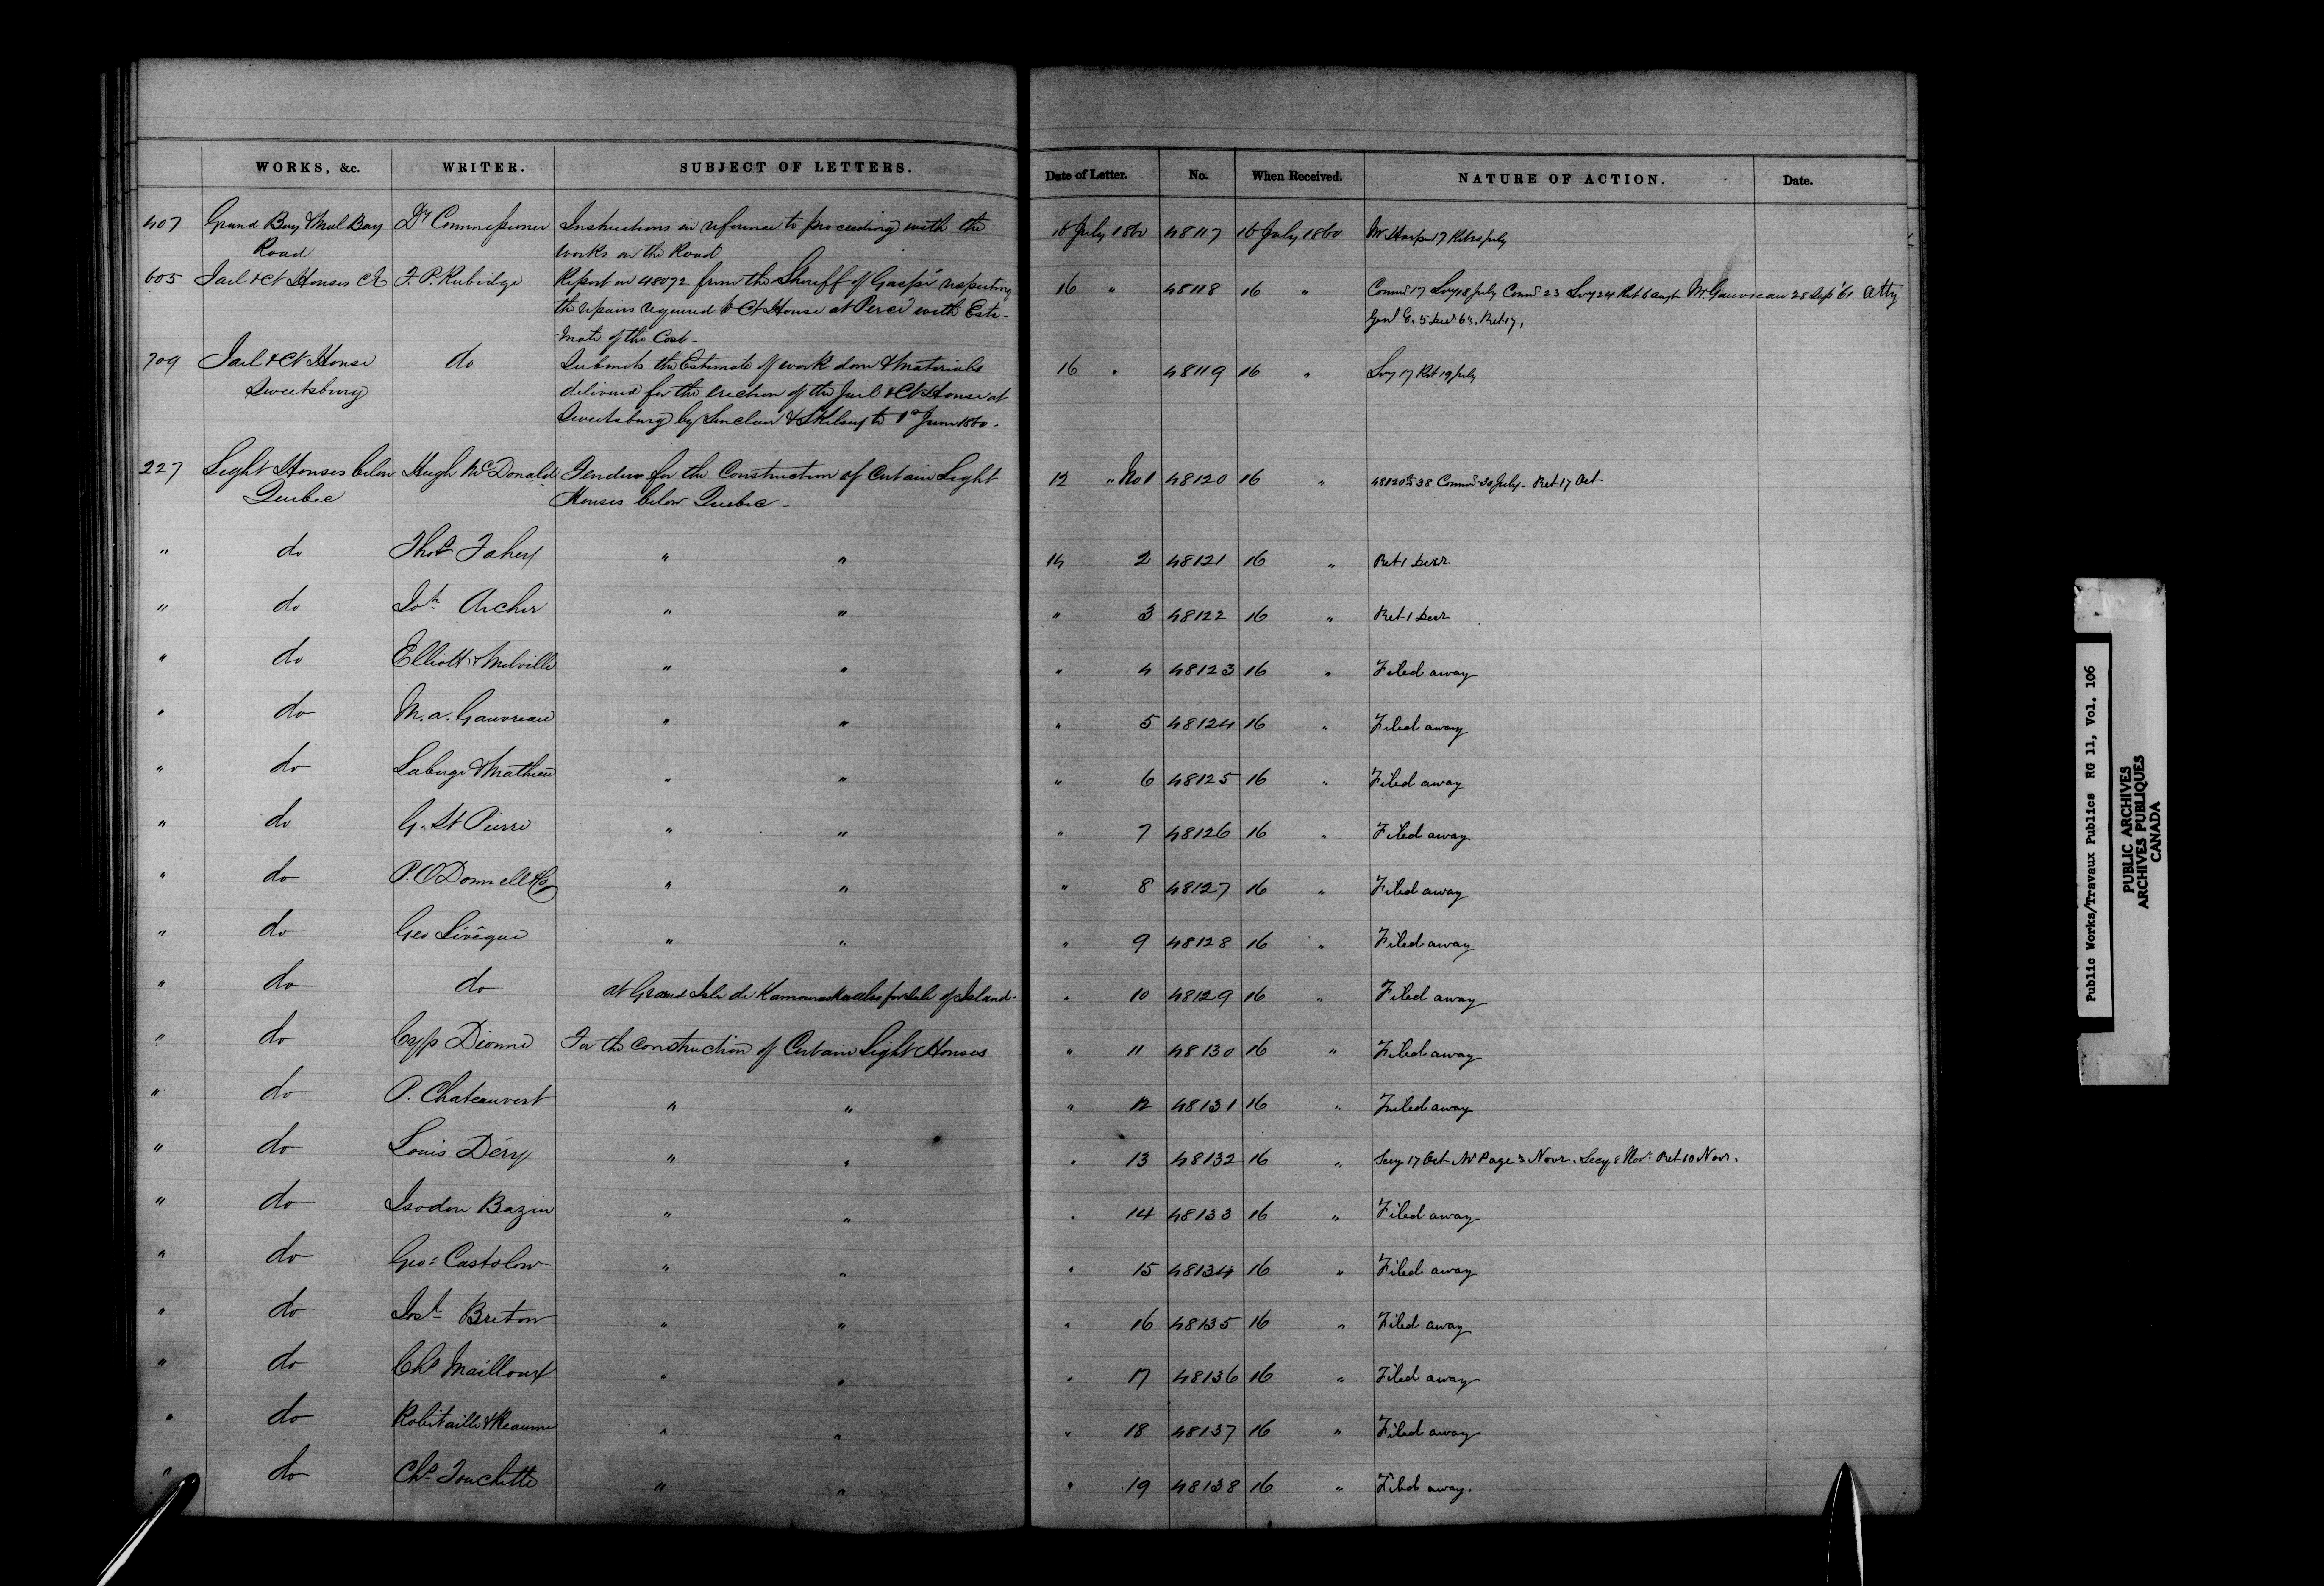 WORKS, &c. WRITER. SUBJECT OF LETTERS. Date of Letter. No. When Received. NATURE OF ACTION. Date.
407 Grand Bay & Mal Bay Dy Commissioner Instructions in reference to proceeding with the 16 July 1860 48117 16 July 1860 Mr Harper 17 Ret 20 July
Road works on the Road
605 Jail & Ct Houses F. P. Rubidge Report on 48072 from the Sheriff of Gaspé respecting 16 " 48118 16 " Commr 17 Secy 18 July Commr 23 Secy 24 Ret 6 augt Mr. Gauvreau 28 Sep '61 Atty
the repairs required to Ct House at Percé with Esti- Genl
-mate of the Cost -
709 Jail & Ct House do Submits the Estimate of work done & Materials 16 " 48119 16 " Secy 17 Ret 19 July
Sweetsburg delivered for the erection of the Jail & Ct House at
Sweetsburg by Sinclair & Skelsey to 1st June 1860.
227 Light Houses below Hugh McDonald Tenders for the Construction of Certain Light 12 " No 1 48120 16 " 48120 to 38 Commr 30 July - Ret 17 Oct
Quebec Houses below Quebec -
" do Thos Fahey " " 14 2 48121 16 " Ret 1 Decr
" do Joh Archer " " " 3 48122 16 " Ret 1 Decr
" do Elliott & Melville " " " 4 48123 16 " Filed away
" do M. A. Gauvreau " " " 5 48124 16 " Filed away
" do Laberge & Mathieu " " " 6 48125 16 " Filed away
" do G. St Pierre " " " 7 48126 16 " Filed away
" do P. O'Donnell & Co " " " 8 48127 16 " Filed away
" do Geo Lévêque " " " 9 48128 16 " Filed away
" do do at Grand Isle de Kamouraska also for Sale of Island. " 10 48129 16 " Filed away
" do Cyp Dionne For the construction of Certain Light Houses " 11 48130 16 " Filed away
" do P. Chateauvert " " " 12 48131 16 " Filed away
" do Louis Déry " " " 13 48132 16 " Secy 17 Oct Mr Page 3 Novr. Secy 8 Novr Ret 10 Novr.
" do Isodore Bazin " " " 14 48133 16 " Filed away
" do Geo: Castolow " " " 15 48134 16 " Filed away
" do Josh Breton " " " 16 48135 16 " Filed away
" do Chs Mailloux " " " 17 48136 16 " Filed away
" do Robitaille & Reaume " " " 18 48137 16 " Filed away
" do Chs Touchette " " " 19 48138 16 " Filed away.
Public Works/Travaux Publics RG 11, Vol. 106
PUBLIC ARCHIVES
ARCHIVES PUBLIQUES
CANADA